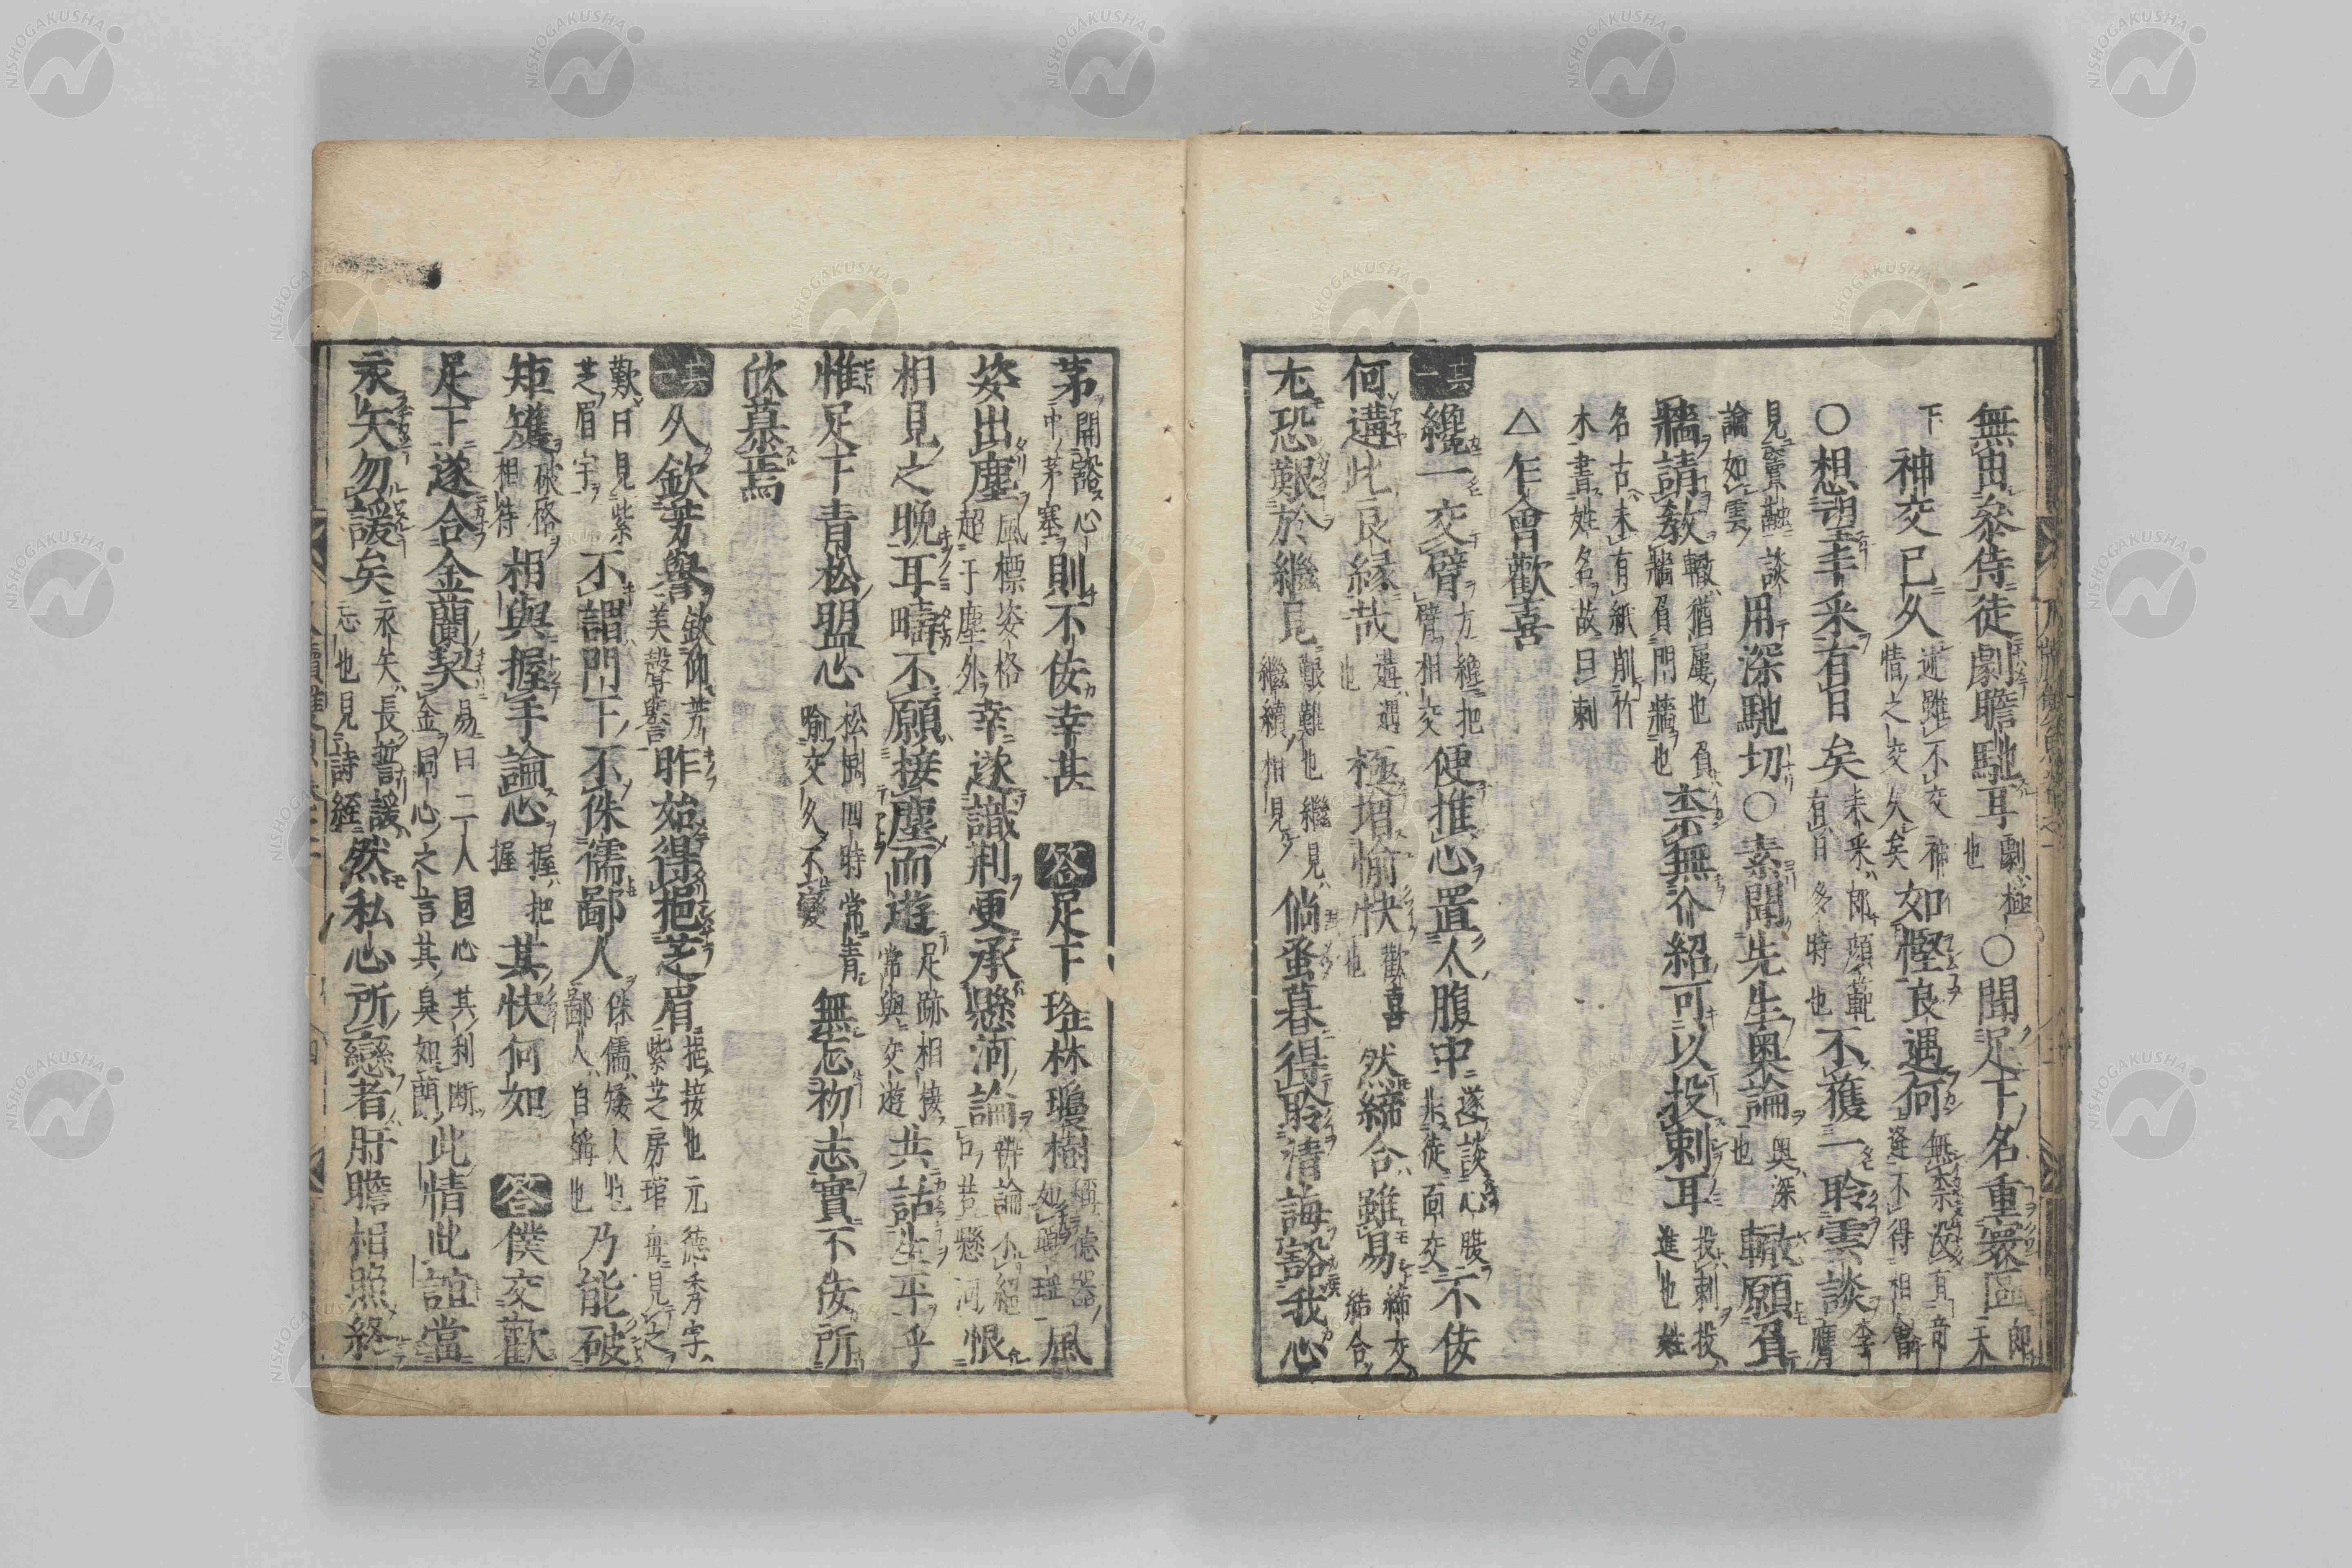 無由參侍徒劇瞻馳耳劇極也○聞足下名重寰區郎天
下神交已久述雖不交神情之交久矣如慳良遇何無柰没有竒逢不得相會
○想望丰采有日矣未采郎顔範有日多時也不獲一聆雲談李膺
見竇融談論如雲用深馳切○素聞先生奥論奥深也轍願負
牆請教轍猶屢也負牆負門牆也柰無介紹可以投刺耳投刺投進也姓
名古未有紙削竹木書姓名故曰刺
△乍會歡喜
其一纔一交臂方纔把臂相交便推心置人腹中遂談心腹非徒面交不佞
何遘此良緣哉遘遇也極増愉快歡喜也然締合雖易締交結合
尤恐艱於繼見艱難也繼見繼續相見倘蚤暮得聆清誨豁我心
茅開豁心中茅塞則不佞幸甚 答足下珞林瓊樹稱德器如瓊瑶風
姿出塵風標姿格超于塵外幸遂識荆更承懸河論辨論不絕口若懸河恨
相見之晚耳疇不願接塵而遊足跡相接常與交遊共話生平乎
惟足下青松盟心松樹四時常青喻交久不變無忘初志實不佞所
欣慕焉
其二久欽芳譽欽仰芳美聲譽昨始得挹芝眉挹接也元德秀字紫芝房琯每見之
歎曰見紫芝眉宇不謂門下不侏儒鄙人侏儒矮人也鄙人自稱也乃能破
矩矱破格相待相與握手論心握把握其快何如 答僕交歡
足下遂合金蘭契易曰二人同心其利断金同心之言其臭如蘭此情此誼當
永矢勿諼矣永矢長誓諼忘也見詩經然私心所戀者肝膽相照終